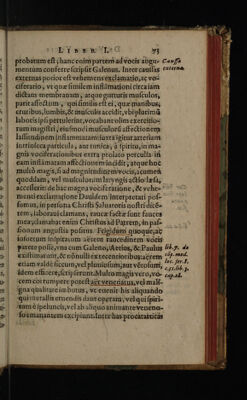 LIBER I. 73
probatum est, hanc coim partem ad vocis augu-
mentum conferre scripsit Galenus. Inter causas
externas potior est vehemens exclamatio, &
ciferatio, vt quæ simile in inflammationi circa iam
dictam membranam, atque gutturis musculos,
parit affectum, qui similis est ei, quæ manibus,
cruribus, lumbis, & musculis accidit, vbi
laboris ipsi pertulerint, vocabant olim exercitio-
rum magistri, eiusmodi musculorũ affectionem
in trinseca particula, aut tunica, ò spiritu, in ma-
gnis vociferationibus extra prolato perculsa in
eam inflãmatoriam affectionem incidit, atque hoc
multò magis, si ad magnitudinem vocis, acumen
quoddam, vel musculorum laryngis actio læsa,
accesserit: de hac magna vociferatione, & vehe-
menti exclamatione Dauidem interpretati pos-
sumus, in persona Christi Saluatoris nostri dicē-
tem, laboraui clamans, raucæ factæ sunt fauces
meæ, clamabat enim Christus ad Patrem, in pas-
sionum angustia positus. Frigidum quoque, ac
insectum inspiratum aërem raucedinem vocis
parere posse, ma cum Galenus, Aetius, & Paulus
existimarunt, & nõnulli ex recentioribus: aërem
etiam valdè siccum, vel pluuiosum, aut vētosum,
idem efficere, scripserunt. Multo magis verò, vo-
cem corrumpere potest aër venenatus, vel mali-
gna qualitate imbutus, vt euenit his aliquando
qui metallis eruendis dant operam, vel qui spiri-
tum ò speluncis, vel ab aliquo animante veneno-
so emanantem excipiunt. Inter has procatarcticas
Causa
externa.
lib. 7. de
cap. 28.